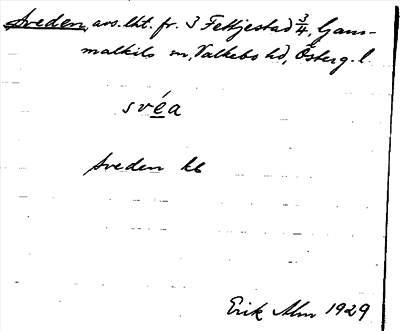 Sveden, avs. lht. fr. 3 Fettjestad 3/4, Gam-
malkils sn, Valkebo hd, Österg. l.
svéa
Sveden kb
Erik Alm 1929